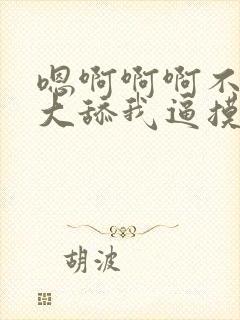 嗯啊啊啊不
大舔我逼摸
胡波